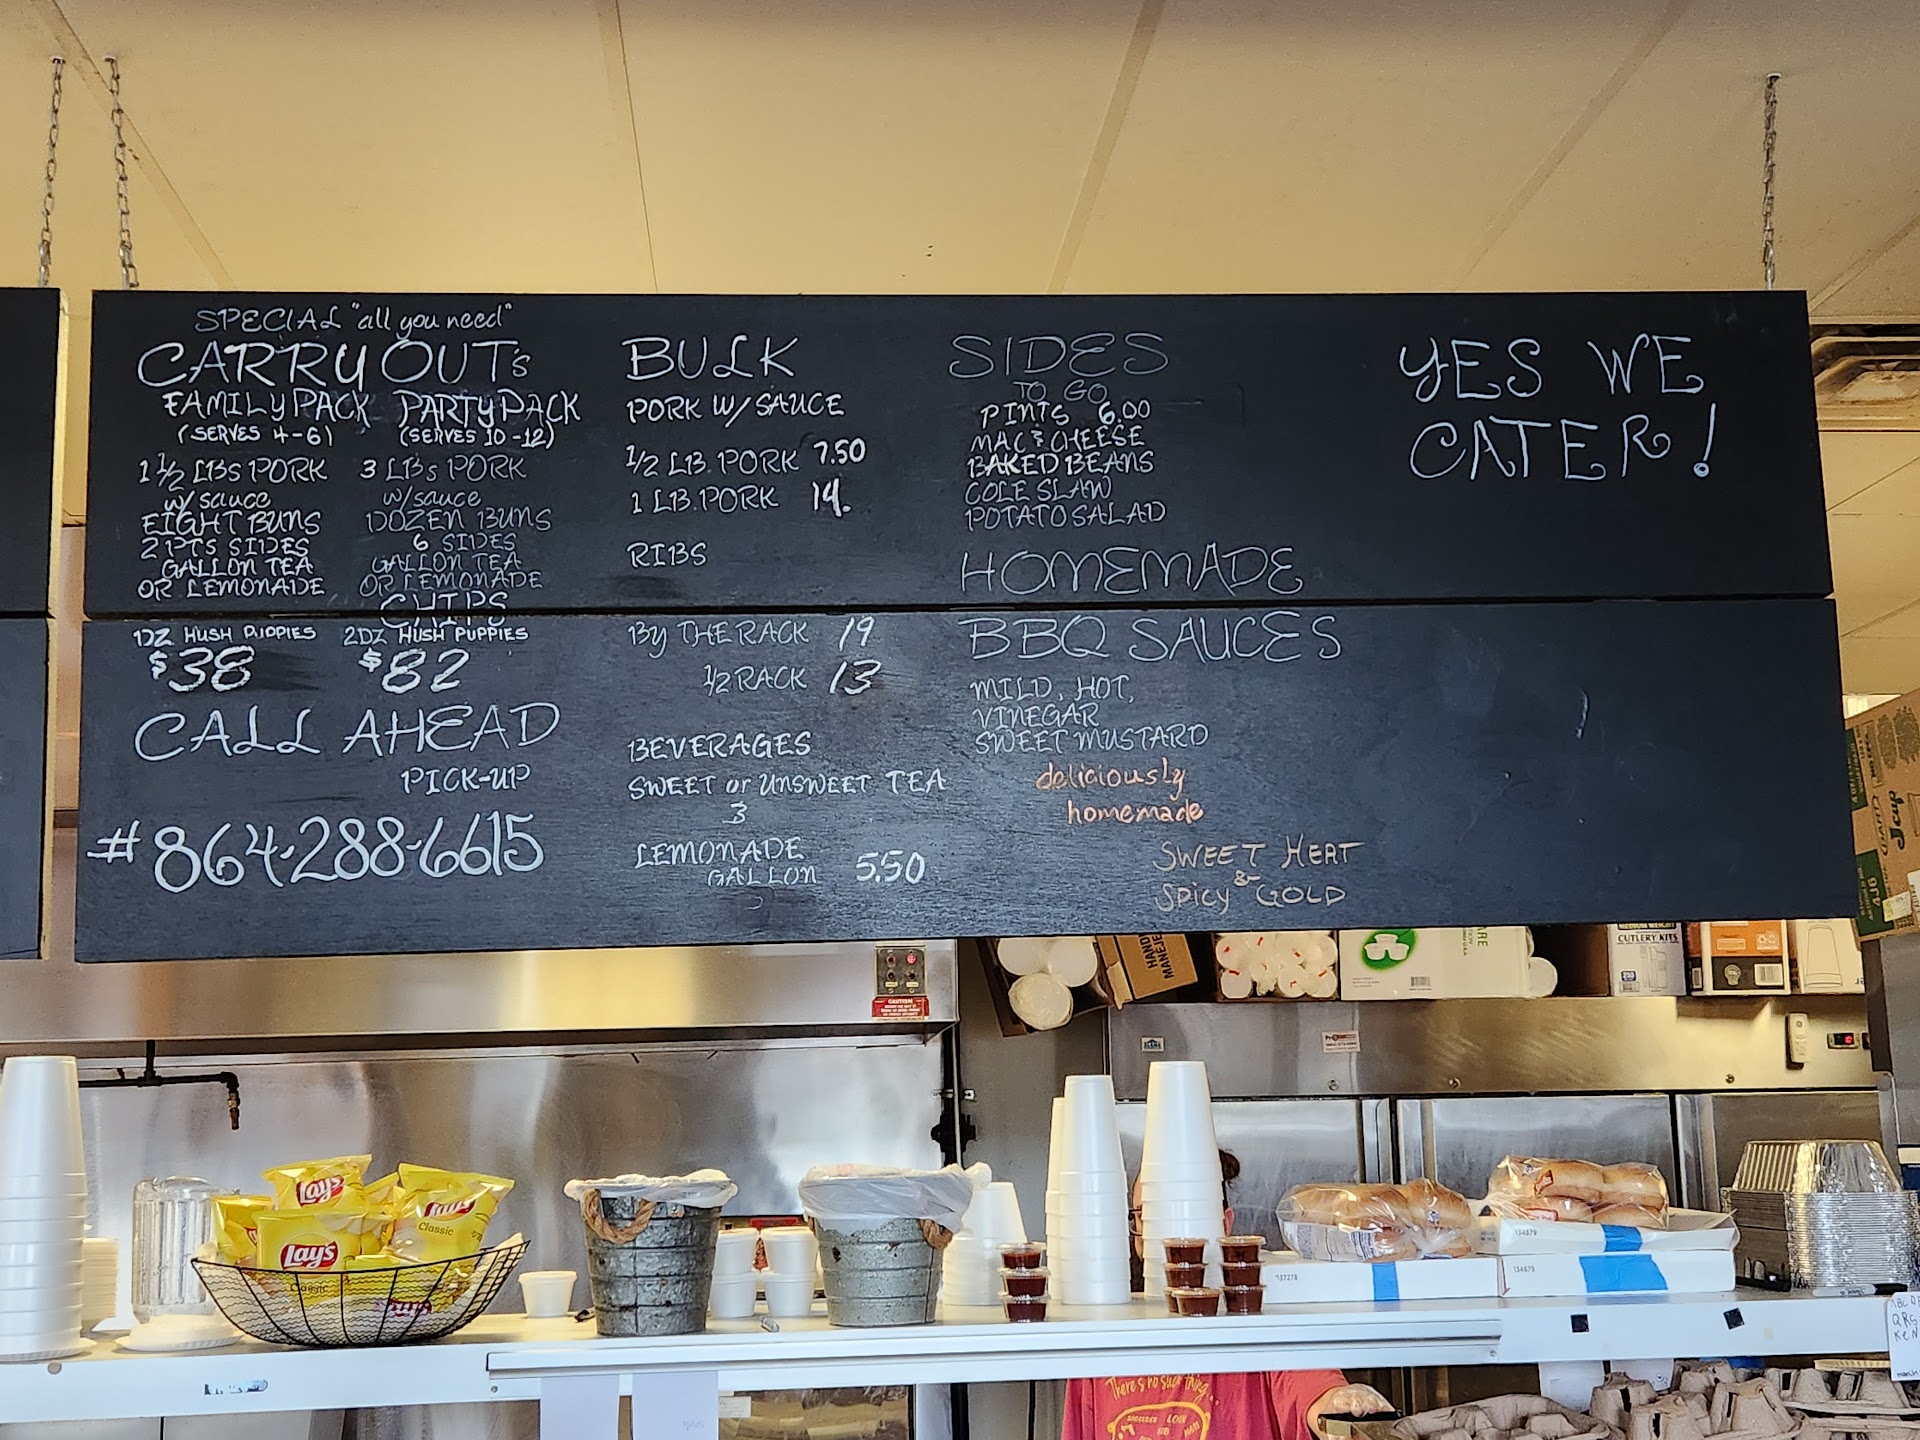 SPECIAL "all you need"
CARRY OUT's
FAMILY PACK
(SERVES 4-6)
1 1/2 LBS PORK
w/ sauce
EIGHT BUNS
2 PTS SIDES
GALLON TEA
OR LEMONADE
1DZ HUSH PUPPIES
$38
PARTY PACK
(SERVES 10-12)
3 LBs PORK
w/sauce
DOZEN BUNS
6 SIDES
GALLON TEA
OR LEMONADE
CHIPS
2DZ HUSH PUPPIES
$82
CALL AHEAD
PICK-UP
#864-288-6615
BULK
PORK W/ SAUCE
1/2 LB. PORK 7.50
1 LB. PORK 14.
RIBS
By THE RACK 19
1/2 RACK 13
BEVERAGES
SWEET or UNSWEET TEA
3
LEMONADE
GALLON 5.50
SIDES
TO GO
PINTS 6.00
MAC & CHEESE
BAKED BEANS
COLE SLAW
POTATO SALAD
HOMEMADE
BBQ SAUCES
MILD, HOT,
VINEGAR
SWEET MUSTARD
deliciously
homemade
SWEET HEAT
&
SPicy GOLD
YES WE
CATER!
CUTLERY KITS
Jcup
CAUTION
Lay's
Lay's
Classic
Classic
134879
137278
134879
There's no such thing..